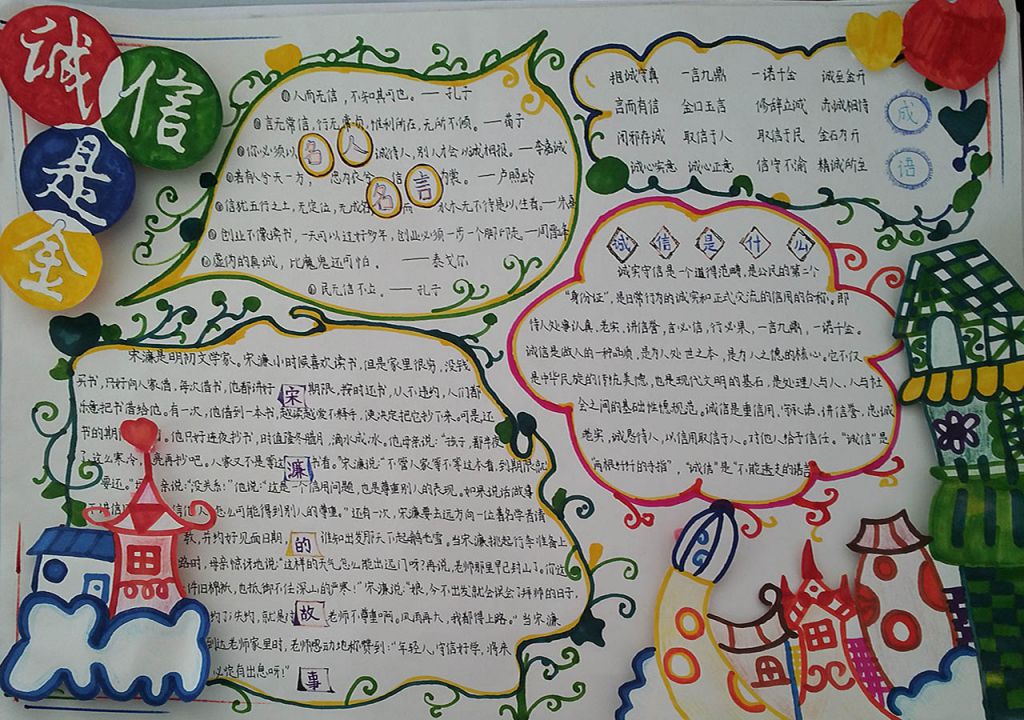 诚
信
是
金
①人而无信，不知其可也。——孔子
②言无常信，行无常贞，惟利所在，无所不倾。——荀子
③你必须以诚待人，别人才会以诚相报。——李嘉诚
名人
名言
⑤信犹五行之土，无定位，无成名
⑥创业不像读书，一天可以过好多年，创业必须一步一个脚印走。
⑦虚伪的真诚，比魔鬼还可怕。——泰戈尔
⑧民无信不立。——孔子
一言九鼎 一诺千金 诚至金开
言而有信 金口玉言 修辞立诚 赤诚相待
闲邪存诚 取信于人 取信于民 金石为开
诚心实意 诚心正意 信守不渝 精诚所至
成
语
诚信是什么
诚实守信是一个道德范畴，是公民的第二个
“身份证”，是日常行为的诚实和正式交流的信用的合称。即
待人处事认真，老实，讲信誉，言必信，行必果，一言九鼎，一诺千金。
诚信是做人的一种品质，是为人处世之本，是为人之德的核心。它不仅
是中华民族的传统美德，也是现代文明的基石，是处理人与人，人与社
会之间的基础性德规范。诚信是重信用，守承诺，讲信誉，忠诚
老实，诚恳待人，以信用取信于人。对他人给予信任。“诚信”是
宋濂是明初文学家。宋濂小时候喜欢读书，但是家里很穷，没钱
买书，只好向人家借，每次借书，他都讲好期限，按时还书，从不违约，人们都
乐意把书借给他。有一次，他借到一本书，越读越爱不释手，便决定把它抄下来。可是还
书的期他只好连夜抄书，时值隆冬腊月，滴水成冰。他母亲说：“孩子，都半夜
了，这么寒冷，亮再抄吧。人家又不是等这看。”宋濂说：“不管人家等不等这本看，到期限就
要还。亲说：“没关系！”他说：“这是个信用问题，也是尊重别人的表现。如果说话做事
怎么可能得到别人的尊重。”还有一次，宋濂要去远方向一位著名学者请
教，并约好见面日期，谁知出发那天下起鹅毛雪。当宋濂挑起行李准备上
路时，母亲惊讶地说：“这样的天气怎么能出远门呀？再说，老师那里早已封山了。你这
件旧棉袄，也抵御不住深山的严寒！”宋濂说：“娘，今不出发就会误了拜师的日子，
老师不尊重啊。风雨再大，我都得上路。”当宋濂
到达老师家里时，老师感动地称赞到：“年轻人，守信好学，将来
必定有出息呀！”
宋
濂
的
故
事